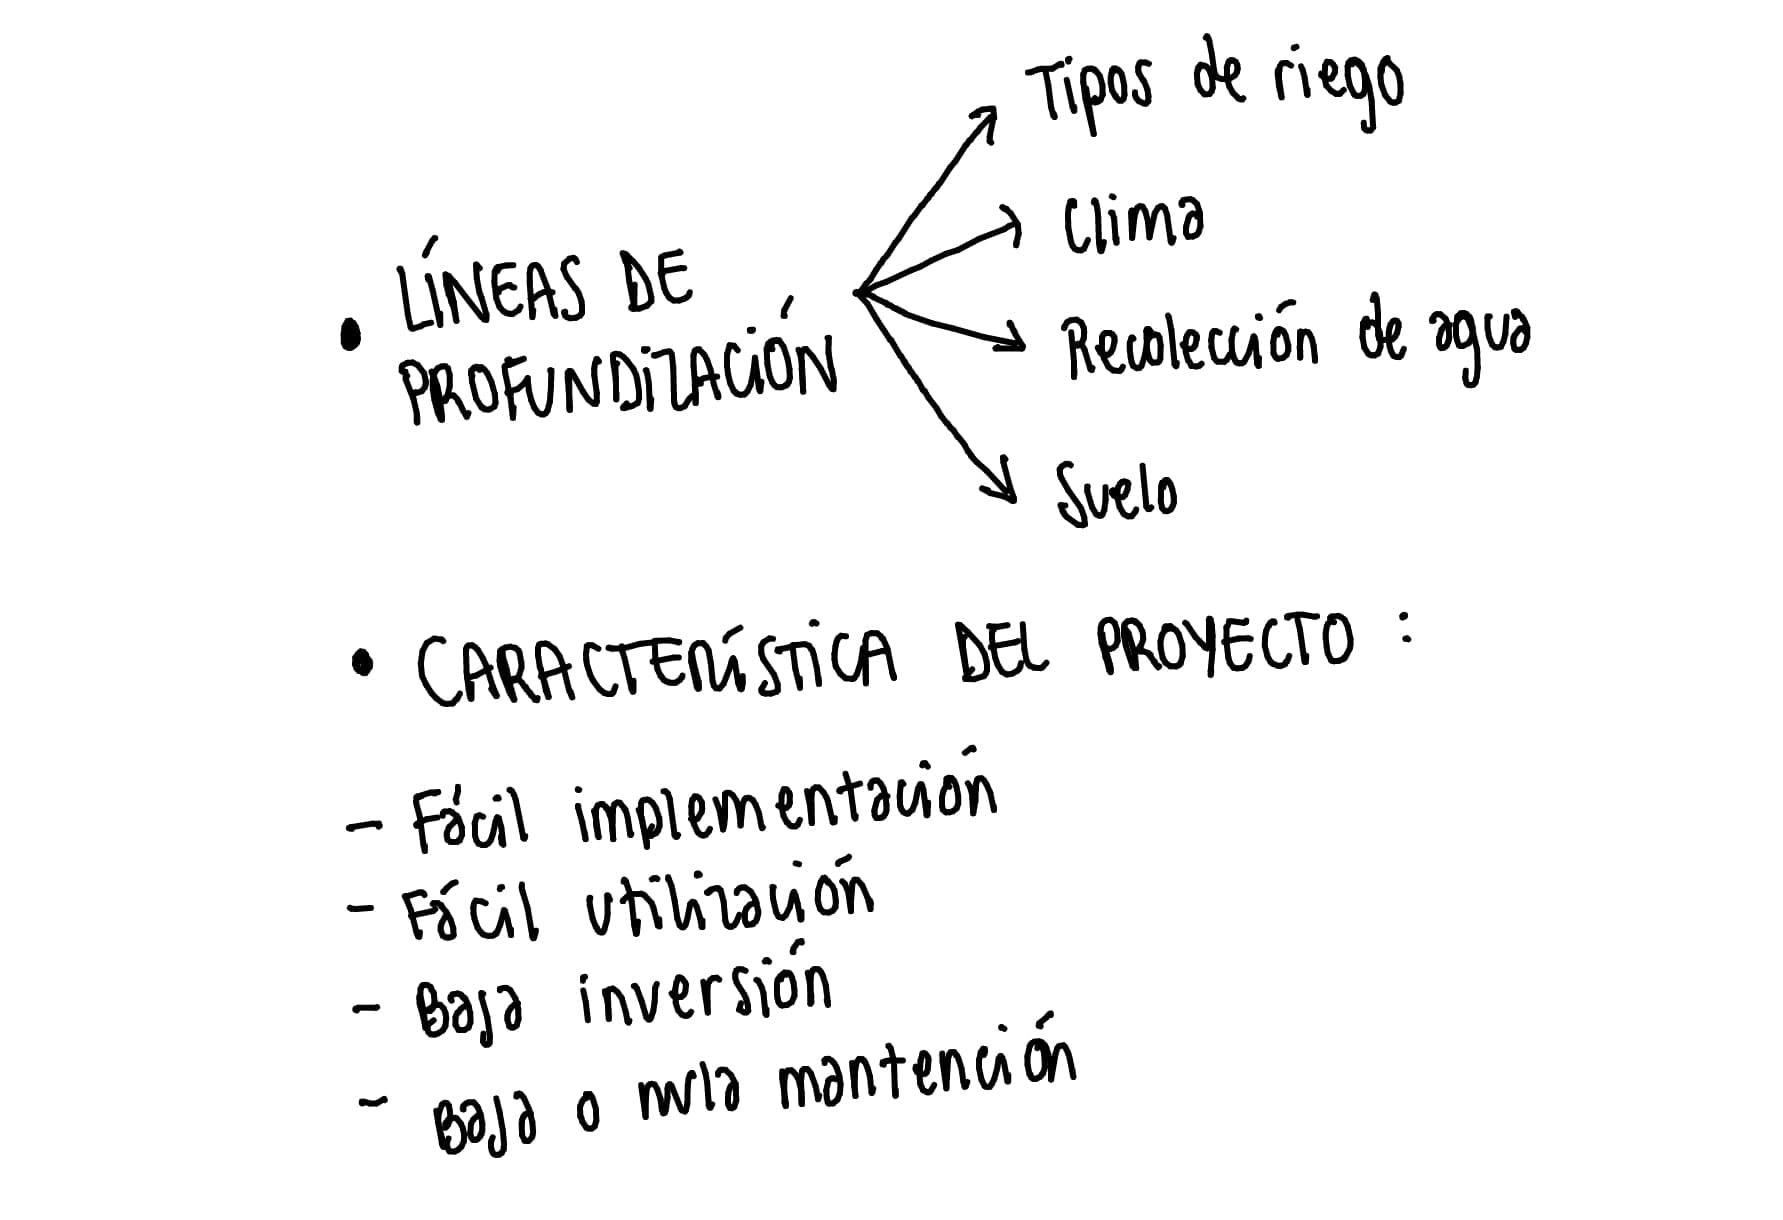 • LÍNEAS DE
PROFUNDIZACIÓN
Tipos de riego
Clima
Recolección de agua
Suelo
• CARACTERÍSTICA DEL PROYECTO :
- Fácil implementación
- Fácil utilización
- Baja inversión
- Baja o nula mantención